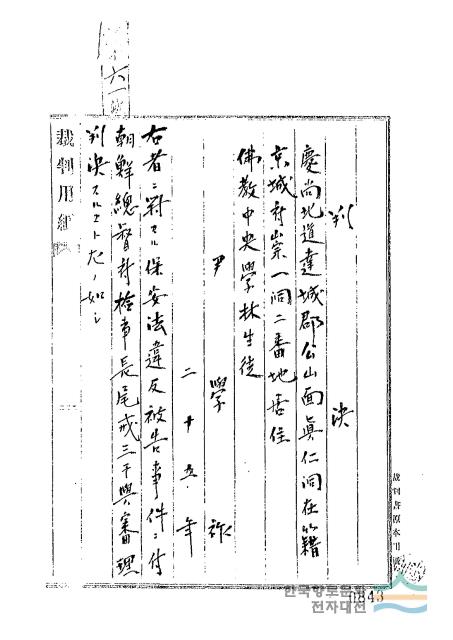 判決
慶尚北道達城郡公山面眞仁洞在籍
京城府崇一洞二番地居住
佛教中央學林生徒
尹學祚
二十五年
右者ニ對スル保安法違反被告事件ニ付
朝鮮總督府檢事長尾戒三干與審理
判決スルコト左ノ如シ
裁判用紙
0843
한국향토문화
전자대전